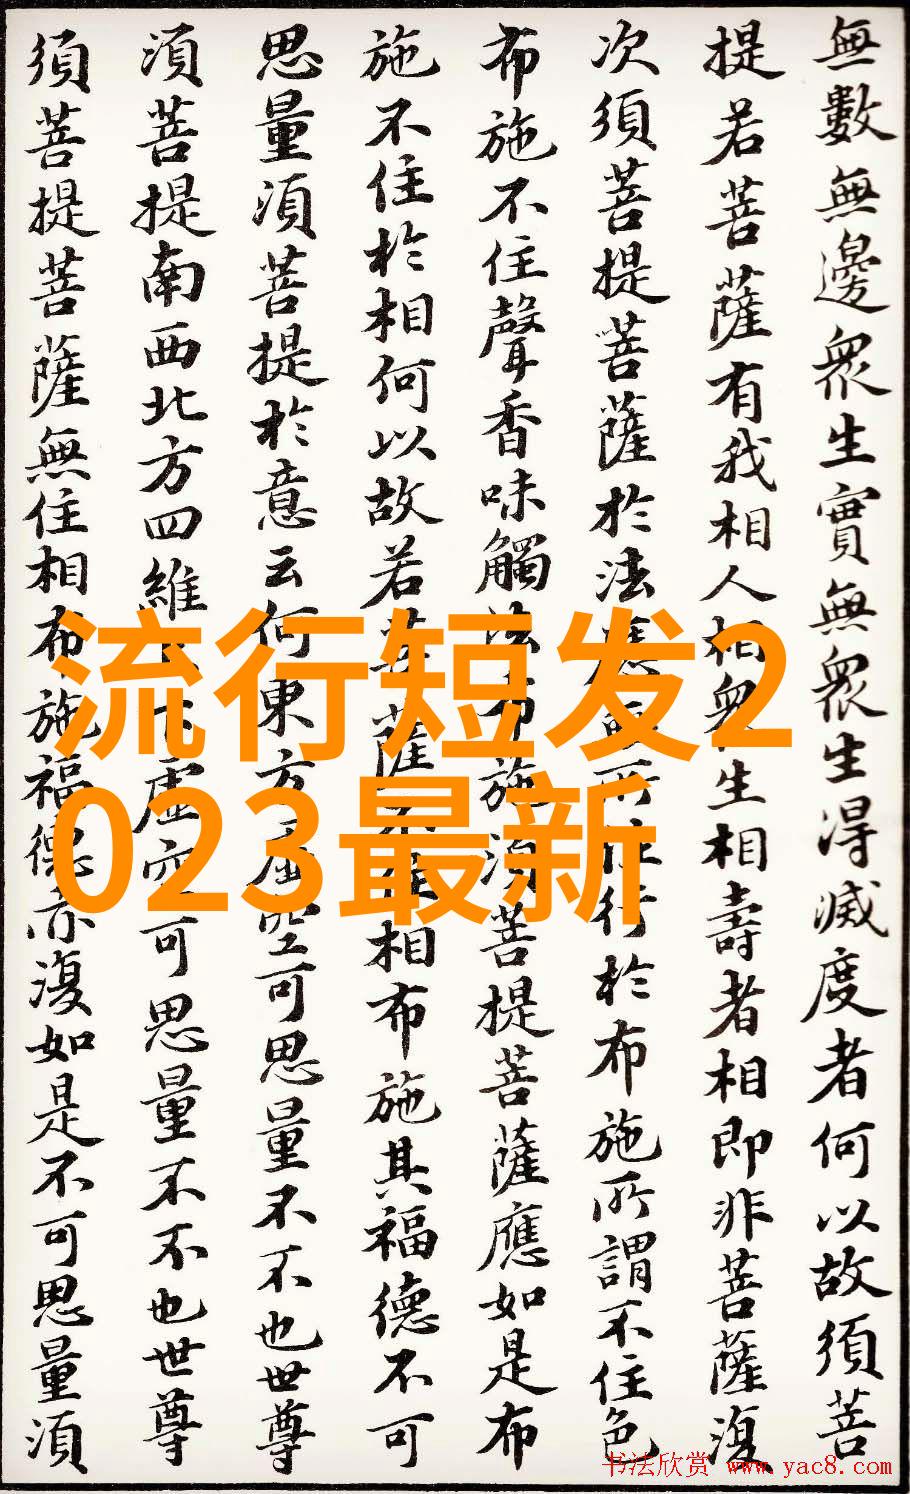 無數無邊衆生實無衆生得滅度者何以故須菩
提若菩薩有我相人相衆生相壽者相即非菩薩復
次須菩提菩薩於法應無所住行於布施所謂不住色
布施不住聲香味觸法布施須菩提菩薩應如是布
施不住於相何以故若菩薩不住相布施其福德不可
思量須菩提於意云何東方虛空可思量不不也世尊
須菩提南西北方四維上下虛空可思量不不也世尊
須菩提菩薩無住相布施福德亦復如是不可思量須
流行短发2
023最新
书法欣赏 www.yac8.com